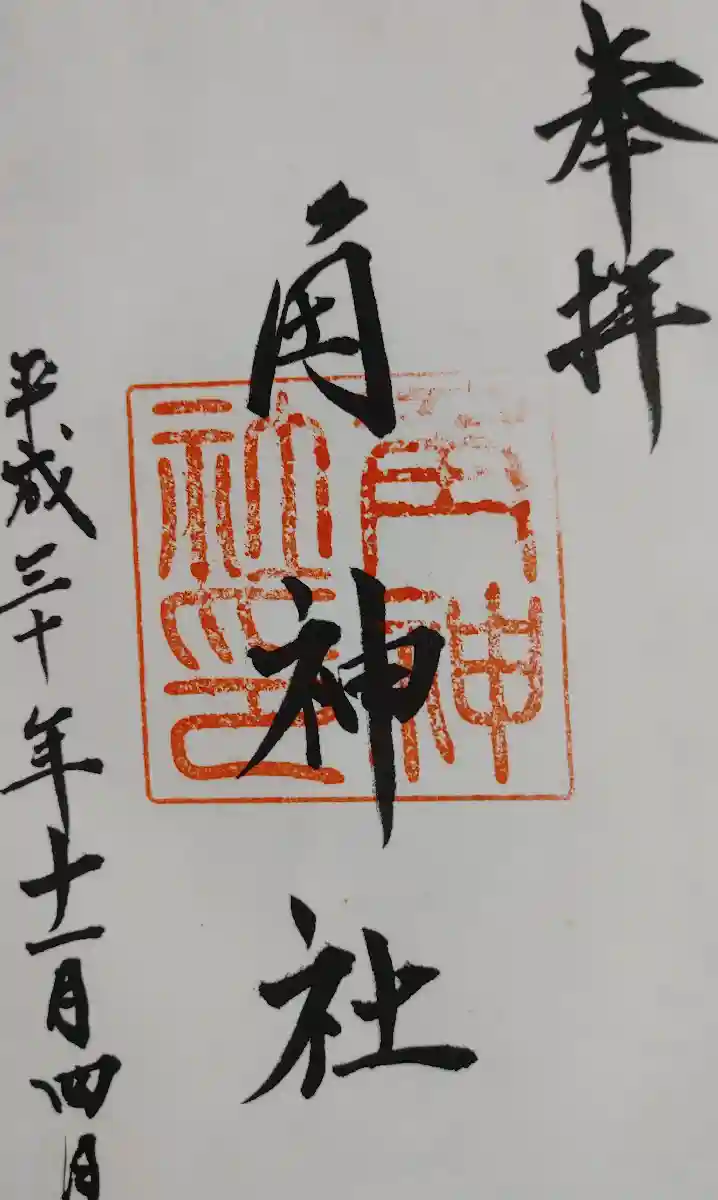 奉拝
角神社
角神社印
平成三十年十一月四日